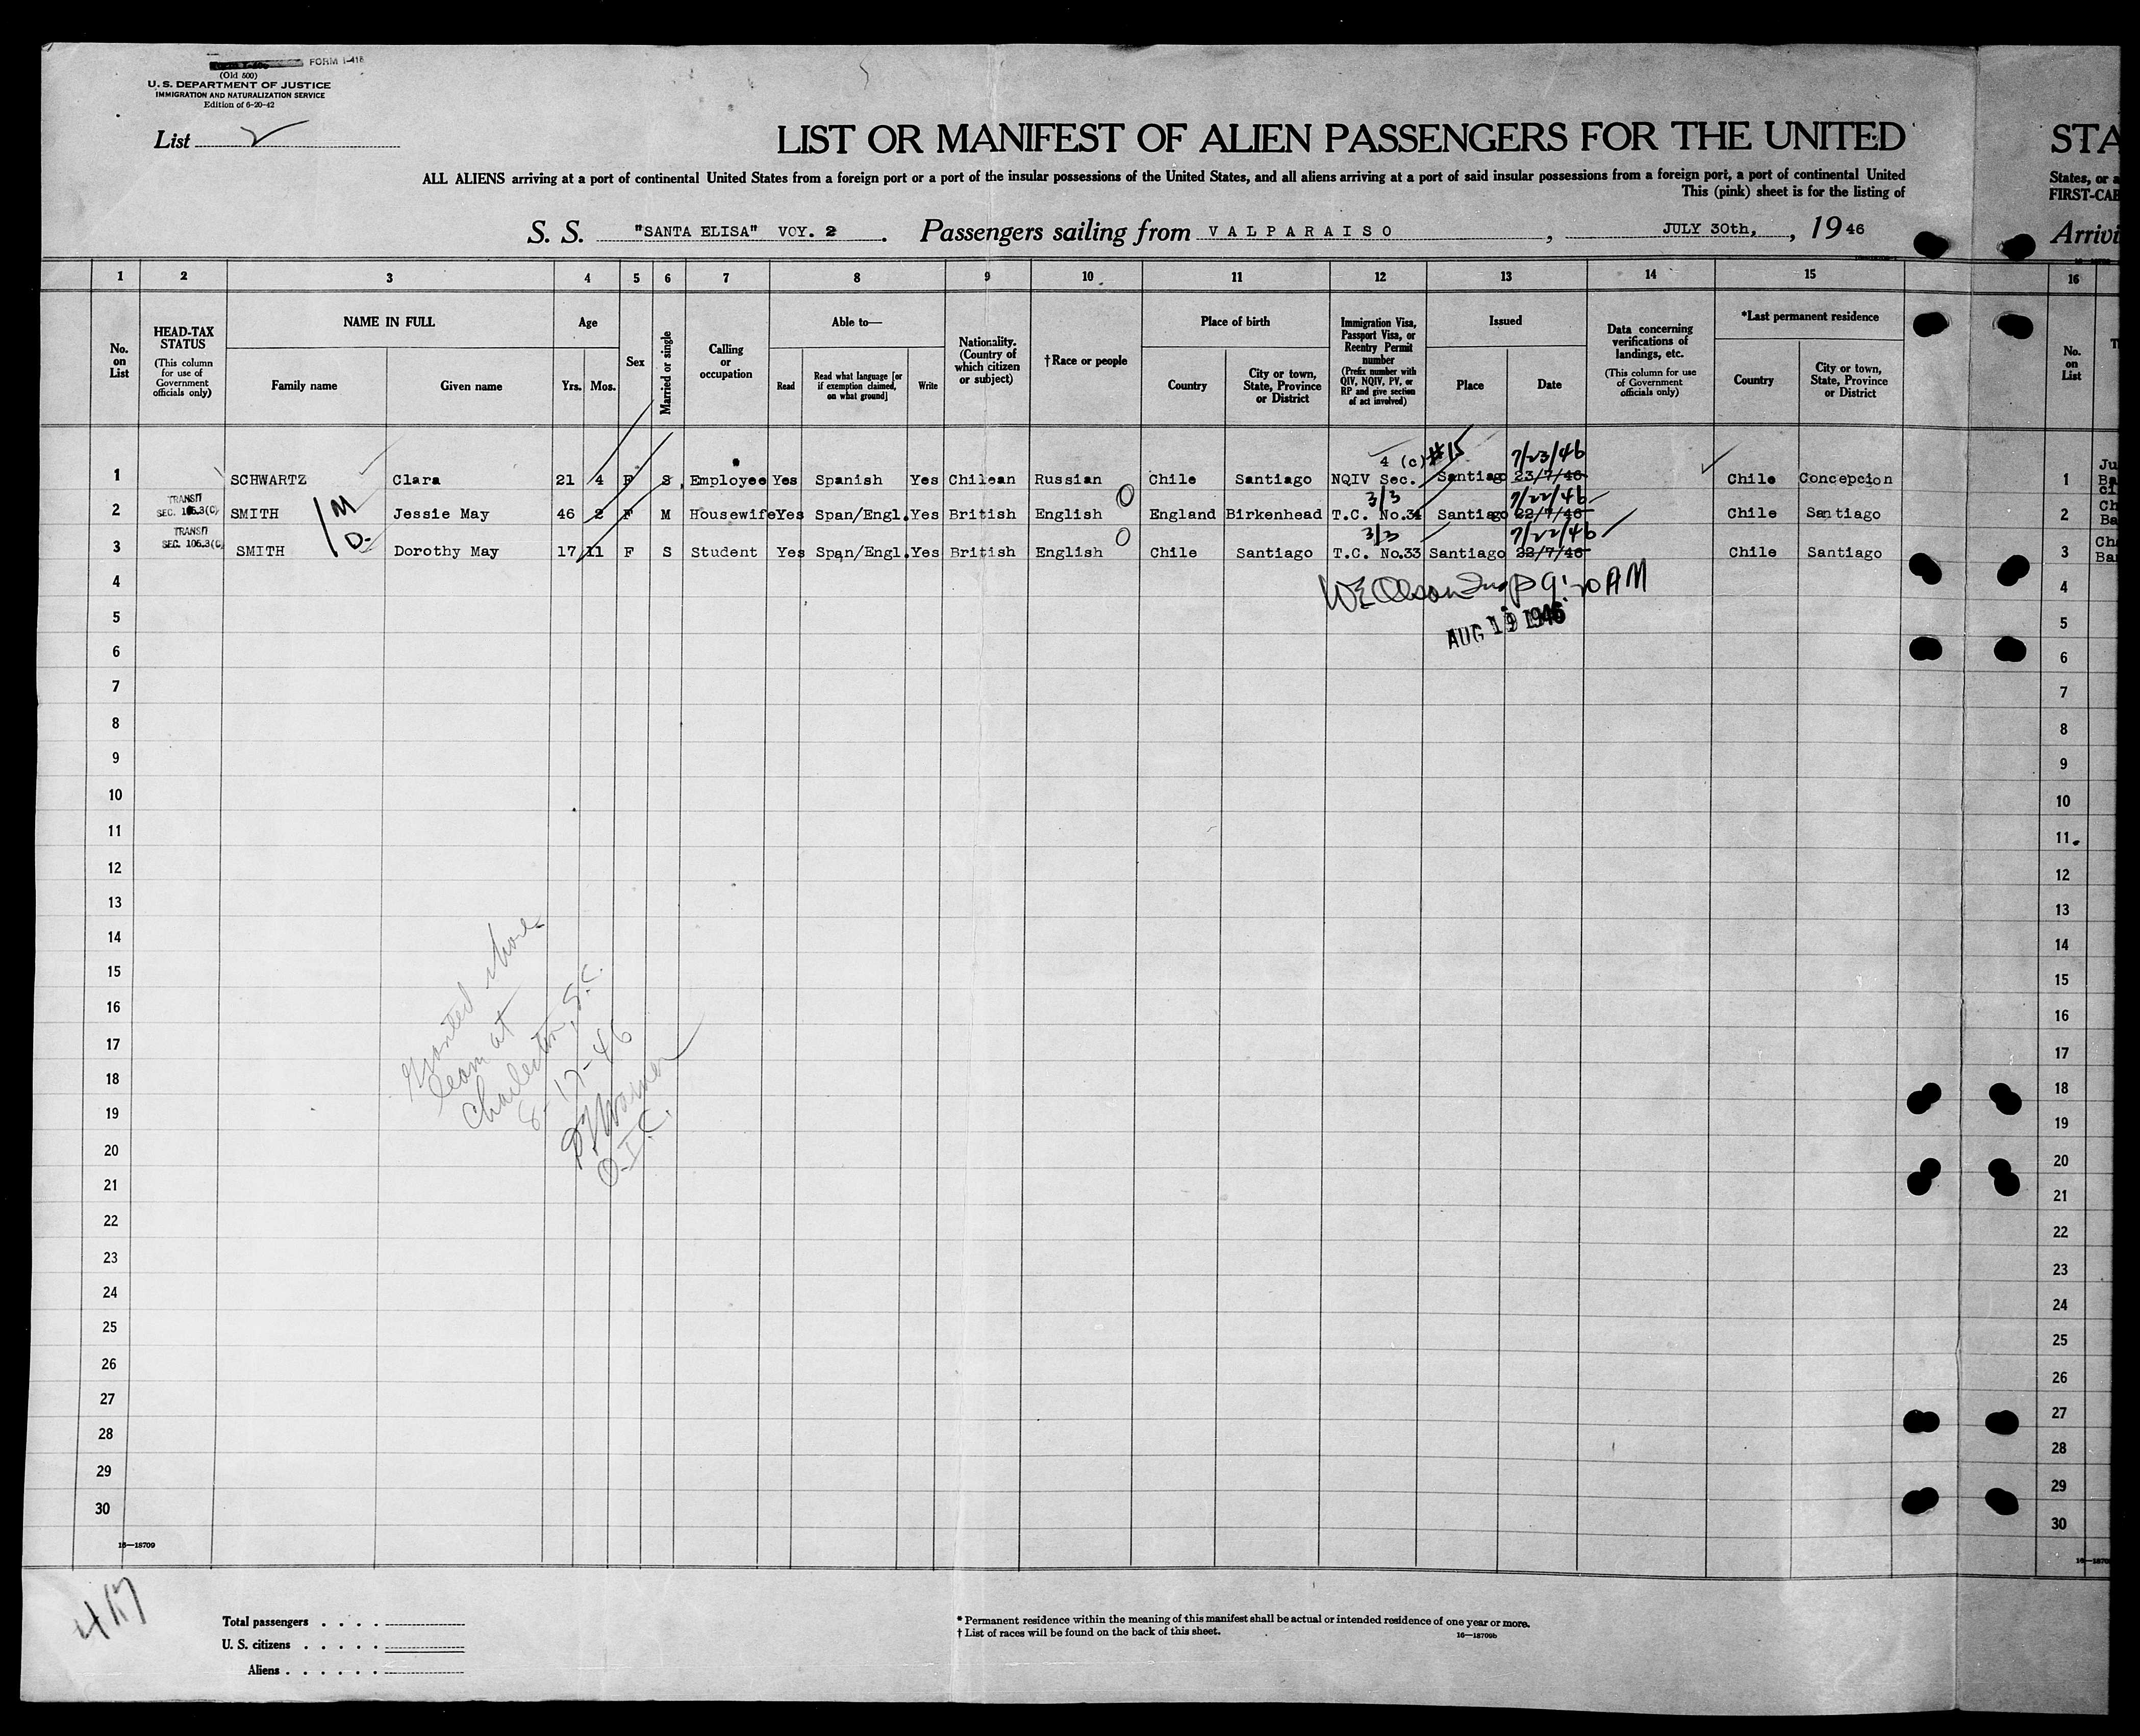 FORM I-416
(Old 500)
U. S. DEPARTMENT OF JUSTICE
IMMIGRATION AND NATURALIZATION SERVICE
Edition of 6-20-42
List 2
LIST OR MANIFEST OF ALIEN PASSENGERS FOR THE UNITED STA
ALL ALIENS arriving at a port of continental United States from a foreign port or a port of the insular possessions of the United States, and all aliens arriving at a port of said insular possessions from a foreign port, a port of continental United States, or a
This (pink) sheet is for the listing of FIRST-CAB
S. S. "SANTA ELISA" VOY. 2. Passengers sailing from VALPARAISO, JULY 30th, , 1946 Arrivi
1 2 3 4 5 6 7 8 9 10 11 12 13 14 15 16
No. on List
HEAD-TAX STATUS
(This column for use of Government officials only)
NAME IN FULL
Family name Given name
Age
Yrs. Mos.
Sex
Married or single
Calling or occupation
Able to—
Read
Read what language [or if exemption claimed, on what ground]
Write
Nationality. (Country of which citizen or subject)
†Race or people
Place of birth
Country
City or town, State, Province or District
Immigration Visa, Passport Visa, or Reentry Permit number
(Prefix number with QIV, NQIV, PV, or RP and give section of act involved)
Issued
Place Date
Data concerning verifications of landings, etc.
(This column for use of Government officials only)
*Last permanent residence
Country
City or town, State, Province or District
No. on List
4 (c) #15 7/23/46
1 SCHWARTZ Clara 21 4 F S Employee Yes Spanish Yes Chilean Russian Chile Santiago NQIV Sec. Santiago 23/7/46 Chile Concepcion 1
TRANSIT 3/3 7/22/46
SEC. 105.3(C)
2 SMITH M Jessie May 46 2 F M Housewife Yes Span/Engl. Yes British English England Birkenhead T.C. No.34 Santiago 22/7/46 Chile Santiago 2
TRANSIT 3/3 7/22/46
SEC. 105.3(C)
3 SMITH D. Dorothy May 17 11 F S Student Yes Span/Engl. Yes British English Chile Santiago T.C. No.33 Santiago 22/7/46 Chile Santiago 3
4 4
W E Olson Insp 9:20 AM
5 AUG 19 1946 5
6 6
7 7
8 8
9 9
10 10
11 11
12 12
13 13
14 14
15 15
16 16
17 17
18 18
19 19
20 20
21 21
22 22
23 23
24 24
25 25
26 26
27 27
28 28
29 29
30 30
Granted shore
leave at
Charleston, S.C.
8-17-46
O.I.C.
16—18709
Total passengers
U. S. citizens
Aliens
* Permanent residence within the meaning of this manifest shall be actual or intended residence of one year or more.
† List of races will be found on the back of this sheet.
16—18709b